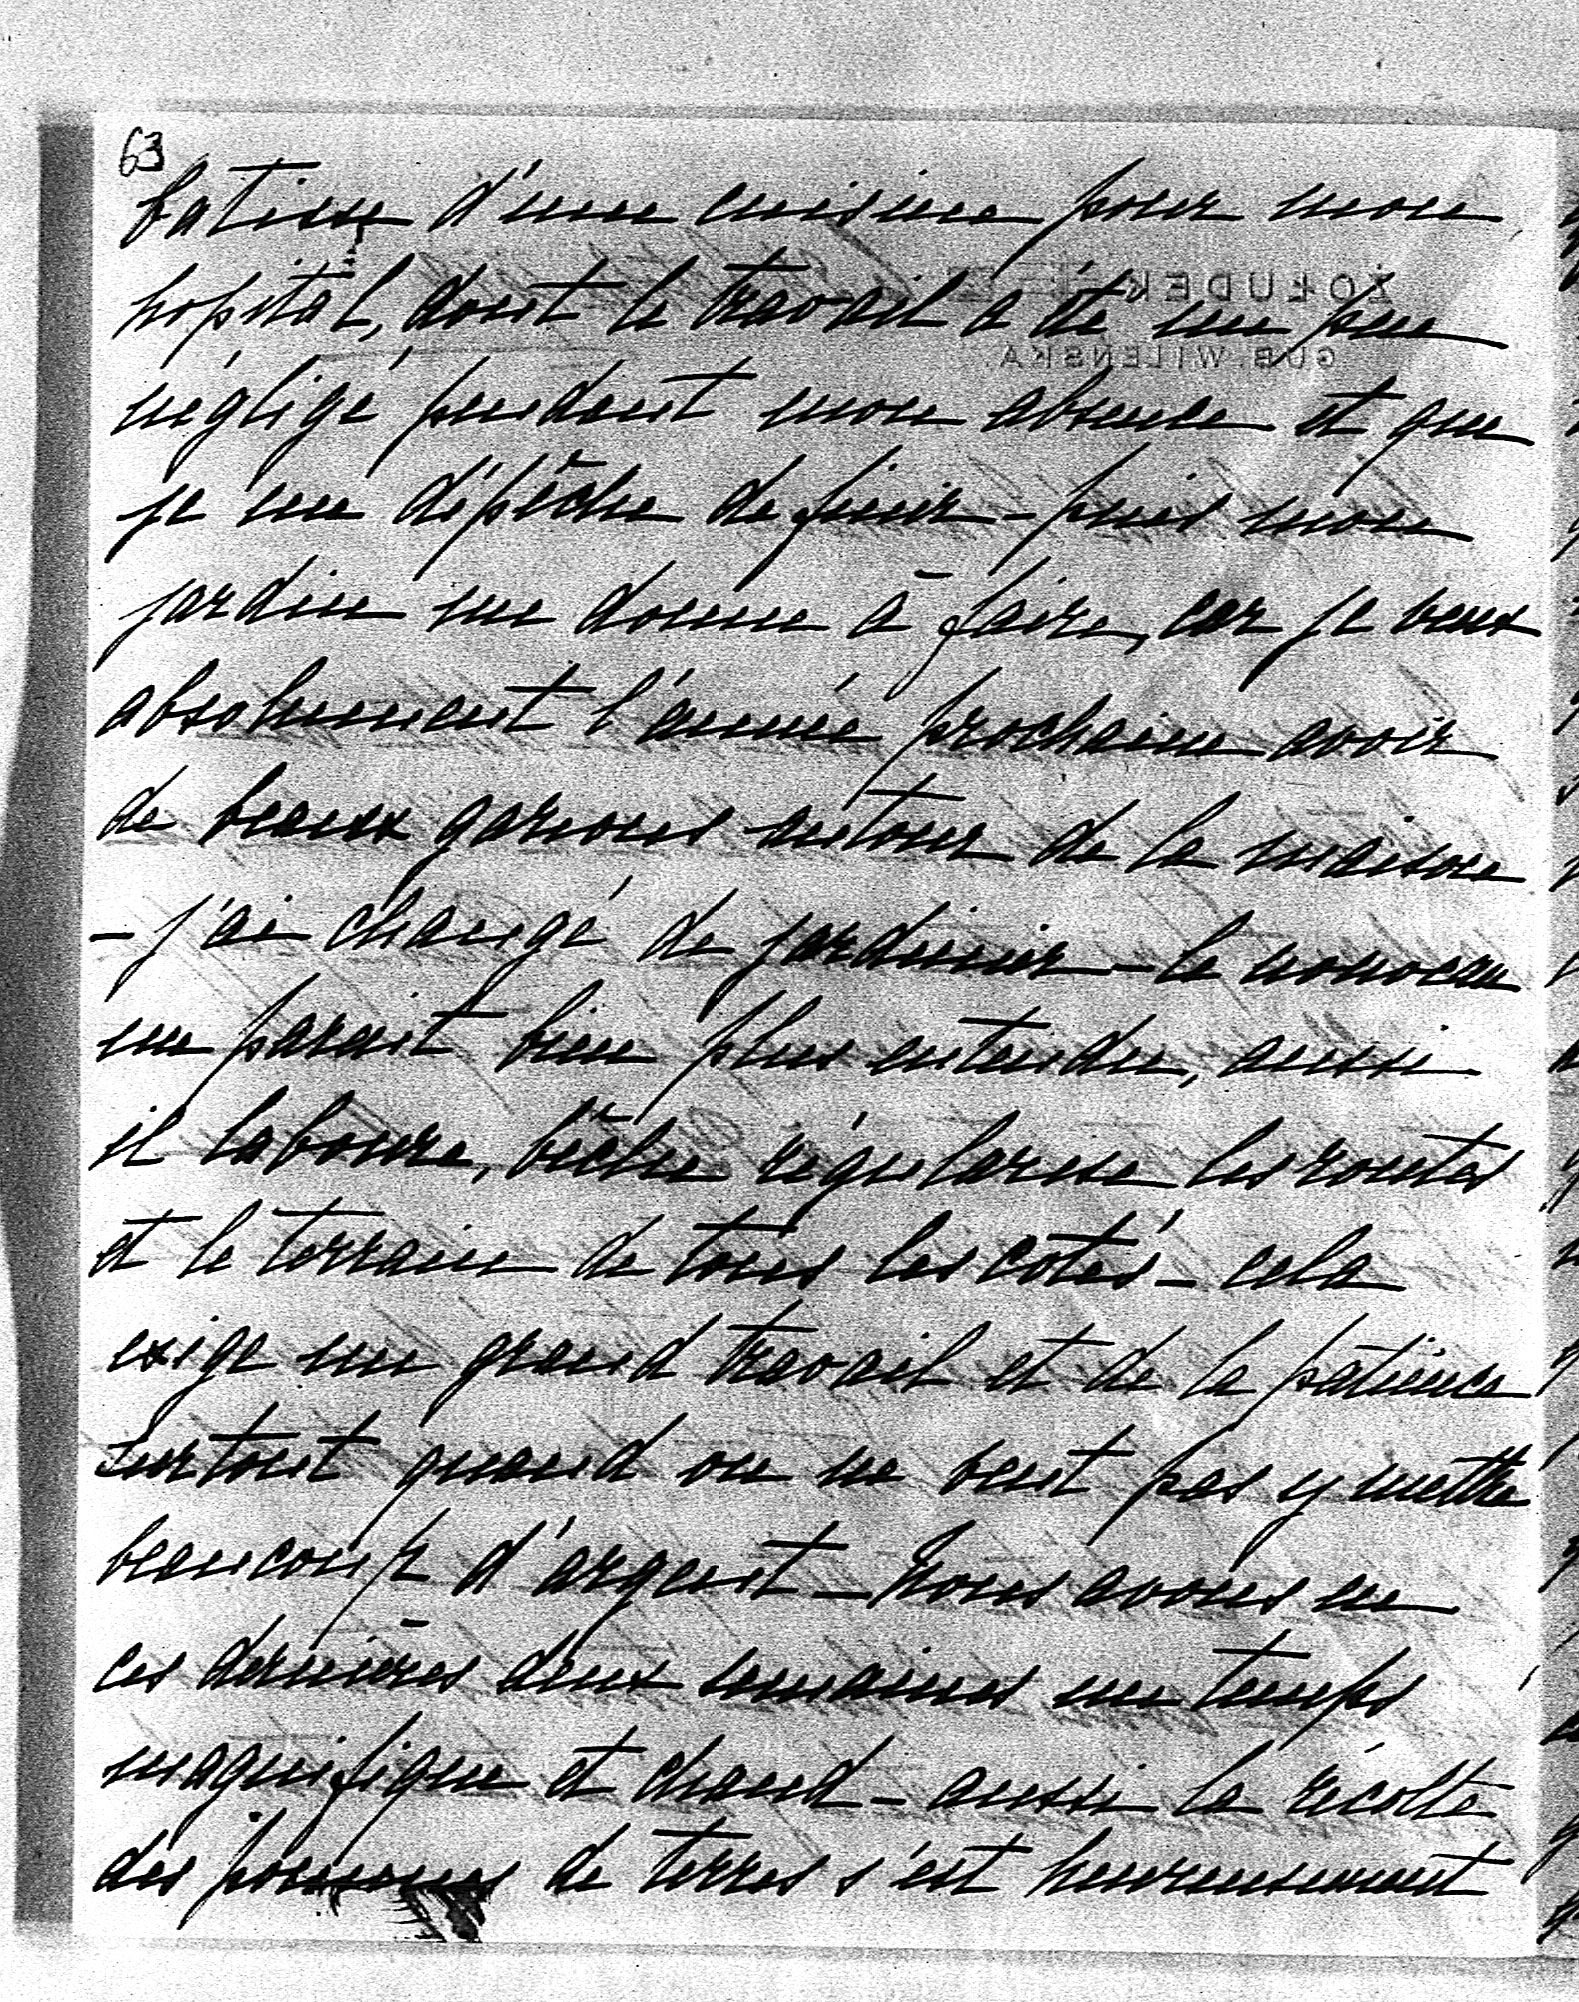 63
batisse d'une cuisine pour mon
hopital, dont le travail a été un peu
négligé pendant mon absence et que
je me dépêche de finir – puis mon
jardin me donne à faire, car je veux
absolument l'année prochaine avoir
de beaux gazons autour de la maison
– j'ai changé de jardinier – le nouveau
me parait bien plus entendu, aussi
il laboure, bêche régularise les routes
et le terrain de tous les cotés – cela
exige un grand travail et de la patience
surtout quand on ne veut pas y mettre
beaucoup d'argent – Nous avons eu
ces dernières deux semaines un temps
magnifique et chaud – aussi la récolte
des pommes de terres s'est heureusement
ŻOŁUDEK
GUB. WILEŃSKA.